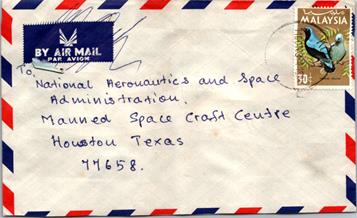 BY AIR MAIL
PAR AVION
MALAYSIA
30c
To,
National Aeronautics and Space
Administration.
Manned Space Craft Centre
Houston Texas
77658.